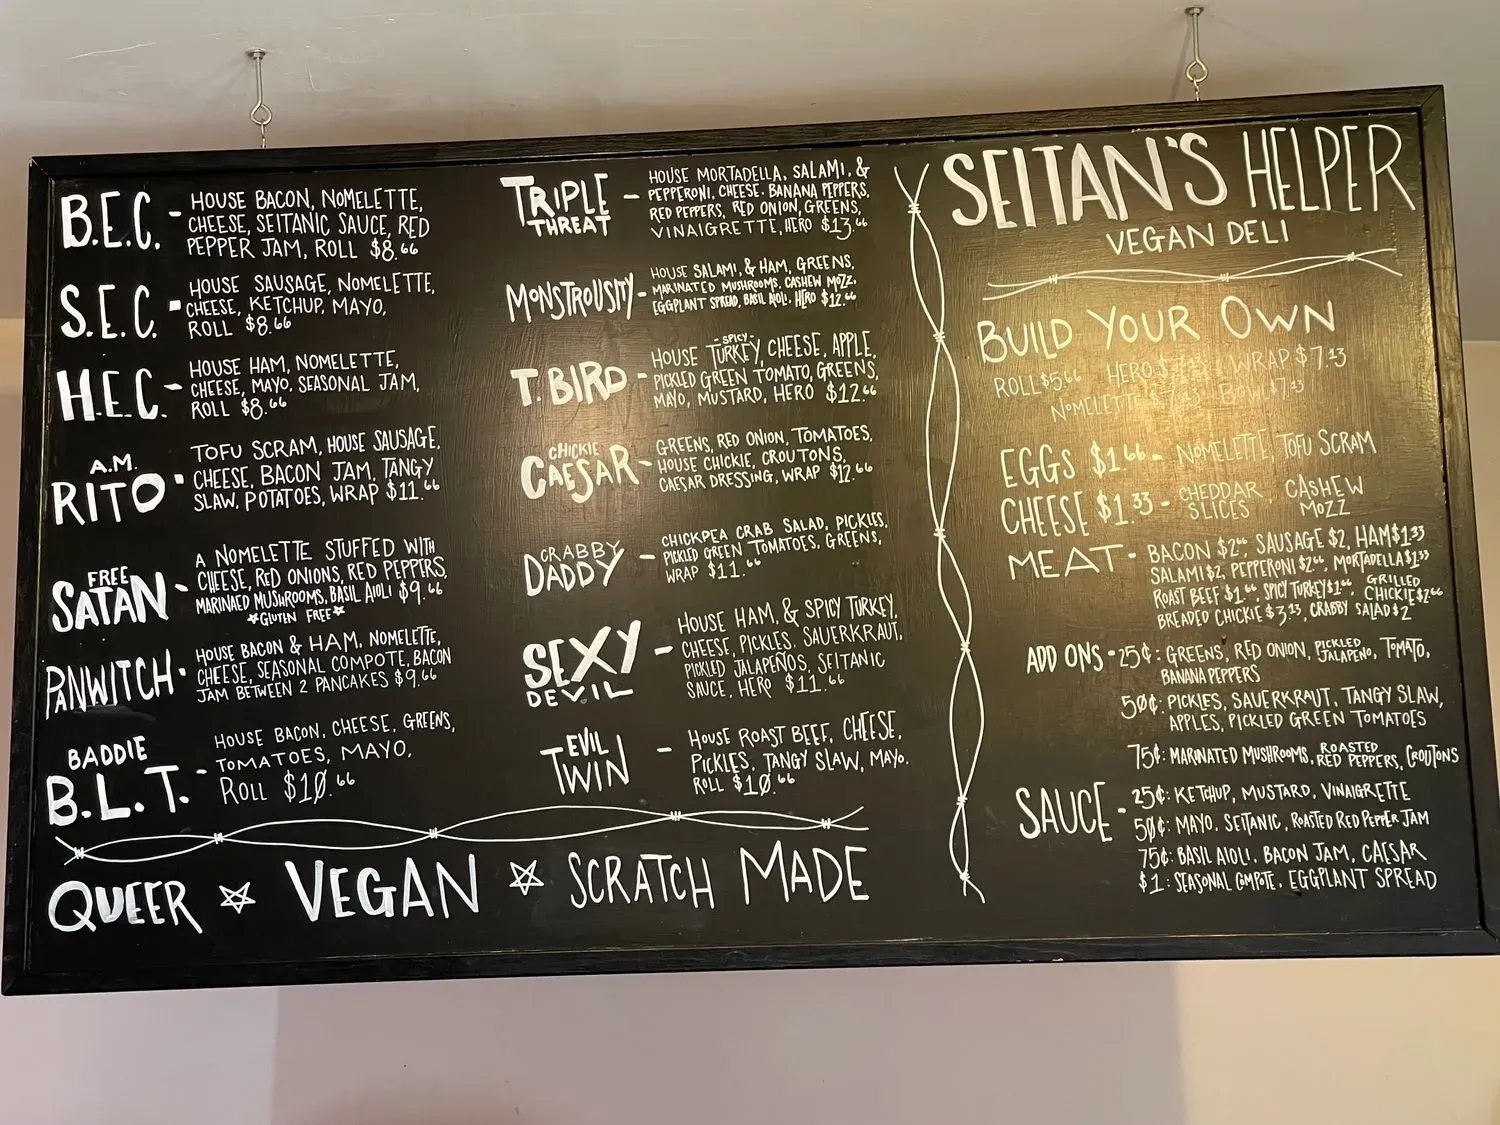 B.E.C. - HOUSE BACON, NOMELETTE,
CHEESE, SEITANIC SAUCE, RED
PEPPER JAM, ROLL $8.66
S.E.C. - HOUSE SAUSAGE, NOMELETTE,
CHEESE, KETCHUP, MAYO,
ROLL $8.66
H.E.C. - HOUSE HAM, NOMELETTE,
CHEESE, MAYO, SEASONAL JAM,
ROLL $8.66
A.M.
RITO - TOFU SCRAM, HOUSE SAUSAGE,
CHEESE, BACON JAM, TANGY
SLAW, POTATOES, WRAP $11.66
FREE
SATAN - A NOMELETTE STUFFED WITH
CHEESE, RED ONIONS, RED PEPPERS,
MARINAED MUSHROOMS, BASIL AIOLI $9.66
☆GLUTEN FREE☆
PANWITCH - HOUSE BACON & HAM, NOMELETTE,
CHEESE, SEASONAL COMPOTE, BACON
JAM BETWEEN 2 PANCAKES $9.66
BADDIE
B.L.T. - HOUSE BACON, CHEESE, GREENS,
TOMATOES, MAYO,
ROLL $10.66
TRIPLE
THREAT - HOUSE MORTADELLA, SALAMI, &
PEPPERONI, CHEESE. BANANA PEPPERS,
RED PEPPERS, RED ONION, GREENS,
VINAIGRETTE, HERO $13.66
MONSTROUSITY - HOUSE SALAMI, & HAM, GREENS,
MARINATED MUSHROOMS, CASHEW MOZZ,
EGGPLANT SPREAD, BASIL AIOLI, HERO $12.66
T. BIRD - HOUSE -SPICY- TURKEY, CHEESE, APPLE,
PICKLED GREEN TOMATO, GREENS,
MAYO, MUSTARD, HERO $12.66
CHICKIE
CAESAR - GREENS, RED ONION, TOMATOES,
HOUSE CHICKIE, CROUTONS,
CAESAR DRESSING, WRAP $12.66
CRABBY
DADDY - CHICKPEA CRAB SALAD, PICKLES,
PICKLED GREEN TOMATOES, GREENS,
WRAP $11.66
SEXY
DEVIL - HOUSE HAM, & SPICY TURKEY,
CHEESE, PICKLES. SAUERKRAUT,
PICKLED JALAPEÑOS, SEITANIC
SAUCE, HERO $11.66
EVIL
TWIN - HOUSE ROAST BEEF, CHEESE,
PICKLES, TANGY SLAW, MAYO.
ROLL $10.66
QUEER ☆ VEGAN ☆ SCRATCH MADE
SEITAN'S HELPER
VEGAN DELI
BUILD YOUR OWN
ROLL $5.66 HERO WRAP $7.13
NOMELETTE BOWL
EGGS $1.66 - NOMELETTE, TOFU SCRAM
CHEESE $1.33 - CHEDDAR SLICES, CASHEW MOZZ
MEAT - BACON $2.66, SAUSAGE $2, HAM $1.33
SALAMI $2, PEPPERONI $2.66, MORTADELLA $1.33
ROAST BEEF $1.66, SPICY TURKEY $1.66, GRILLED CHICKIE $2.66
BREADED CHICKIE $3.13, CRABBY SALAD $2
ADD ONS - 25¢: GREENS, RED ONION, PICKLED JALAPEÑO, TOMATO,
BANANA PEPPERS
50¢: PICKLES, SAUERKRAUT, TANGY SLAW,
APPLES, PICKLED GREEN TOMATOES
75¢: MARINATED MUSHROOMS, ROASTED RED PEPPERS, CROUTONS
SAUCE - 25¢: KETCHUP, MUSTARD, VINAIGRETTE
50¢: MAYO, SEITANIC, ROASTED RED PEPPER JAM
75¢: BASIL AIOLI, BACON JAM, CAESAR
$1: SEASONAL COMPOTE, EGGPLANT SPREAD